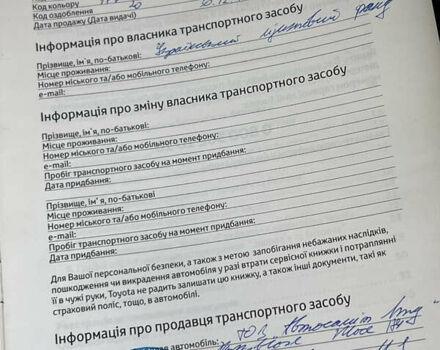 Код кольору
Код оздоблення 20
Дата продажу (Дата видачі)
Інформація про власника транспортного засобу
Прізвище, ім'я, по-батькові:
Місце проживання:
Номер міського та/або мобільного телефону:
e-mail:
Інформація про зміну власника транспортного засобу
Прізвище, ім'я, по-батькові:
Місце проживання:
Номер міського та/або мобільного телефону:
e-mail:
Пробіг транспортного засобу на момент придбання:
Дата придбання:
Прізвище, ім'я, по-батькові
Місце проживання:
Номер міського та/або мобільного телефону:
e-mail:
Пробіг транспортного засобу на момент придбання:
Дата придбання:
Для Вашої персональної безпеки, а також з метою запобігання небажаних наслідків,
пошкодження чи викрадення автомобіля у разі втрати сервісної книжки і потраплянні
її в чужі руки, Toyota не радить залишати цю книжку, а також інші документи, такі як
страховий поліс, тощо, в автомобілі.
Інформація про продавця транспортного засобу
автомобіль: